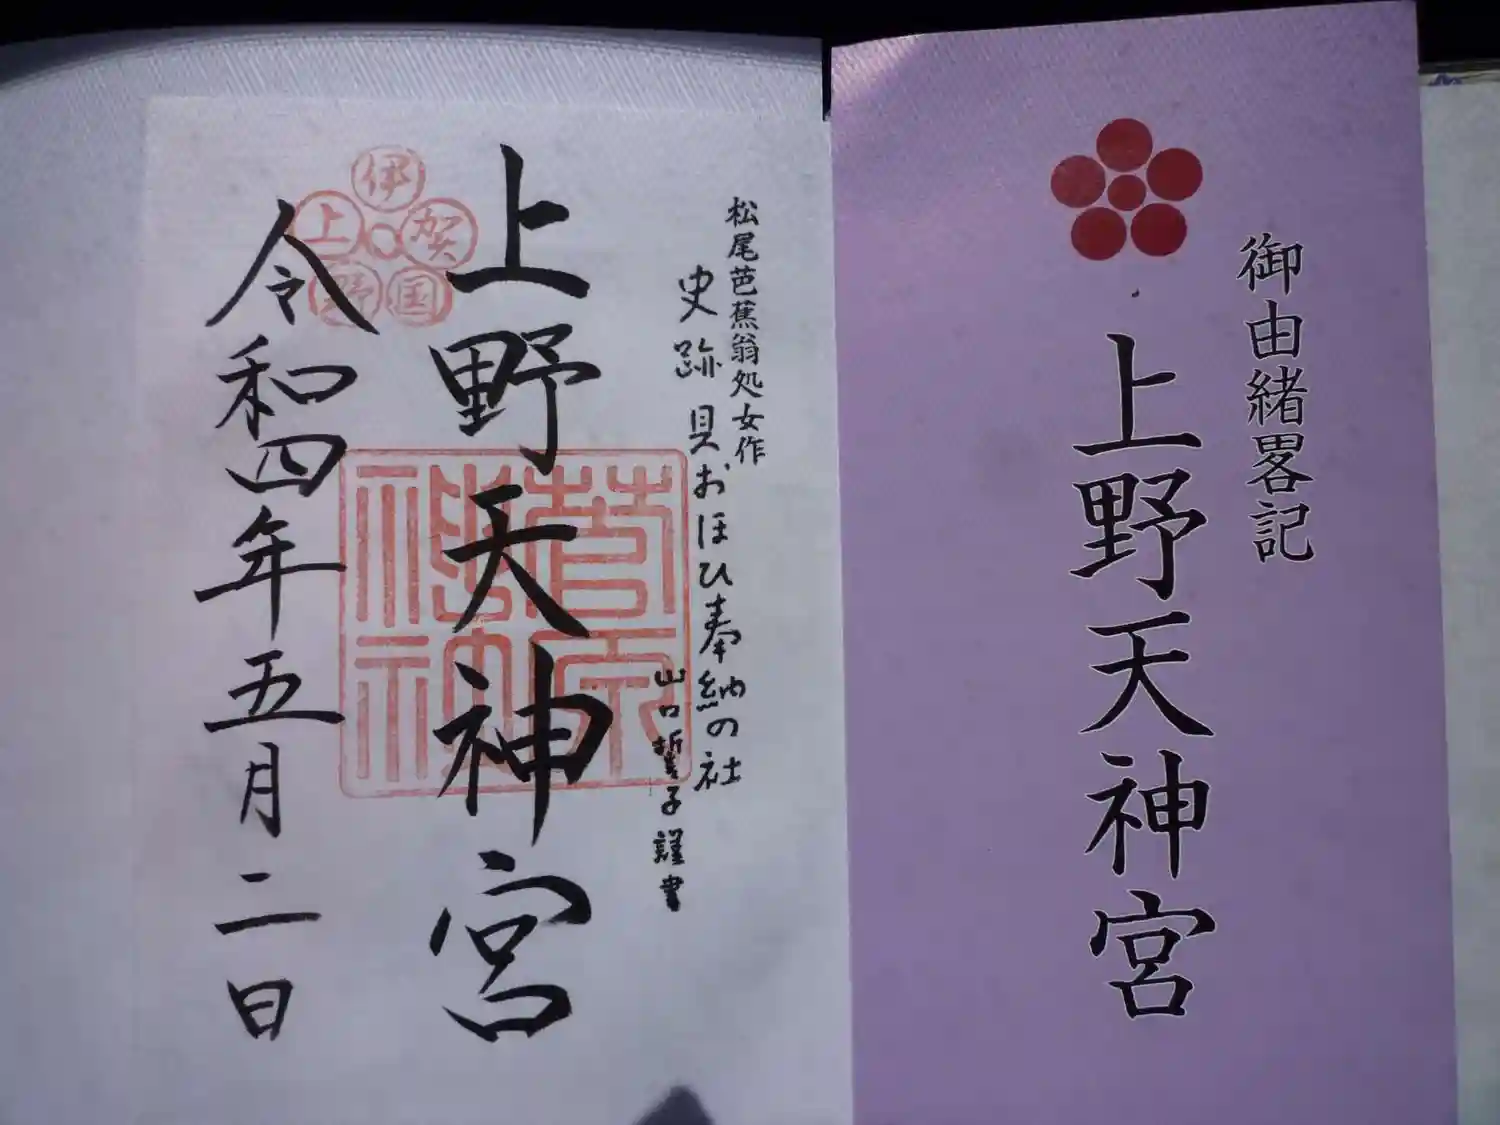 御由緒畧記
上野天神宮
松尾芭蕉翁処女作
史跡貝おほひ奉納の社
山口誓子謹書
上野天神宮
伊賀国
上野
菅原神社
令和四年五月二日